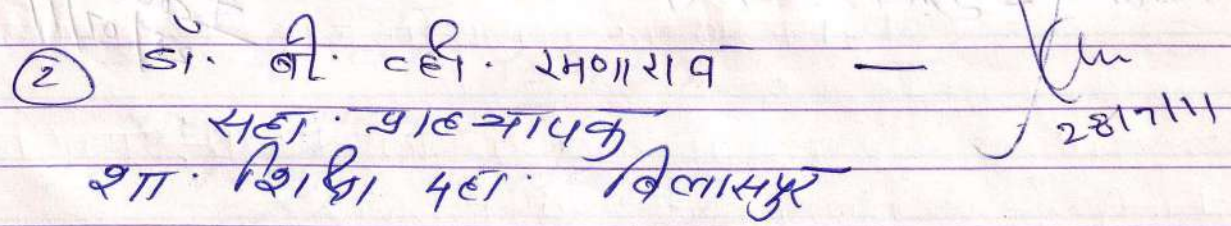 ② डॉ. बी. व्ही. रमणाराव —
28/7/11
सहा. प्राध्यापक
शा. शिक्षा महा. बिलासपुर